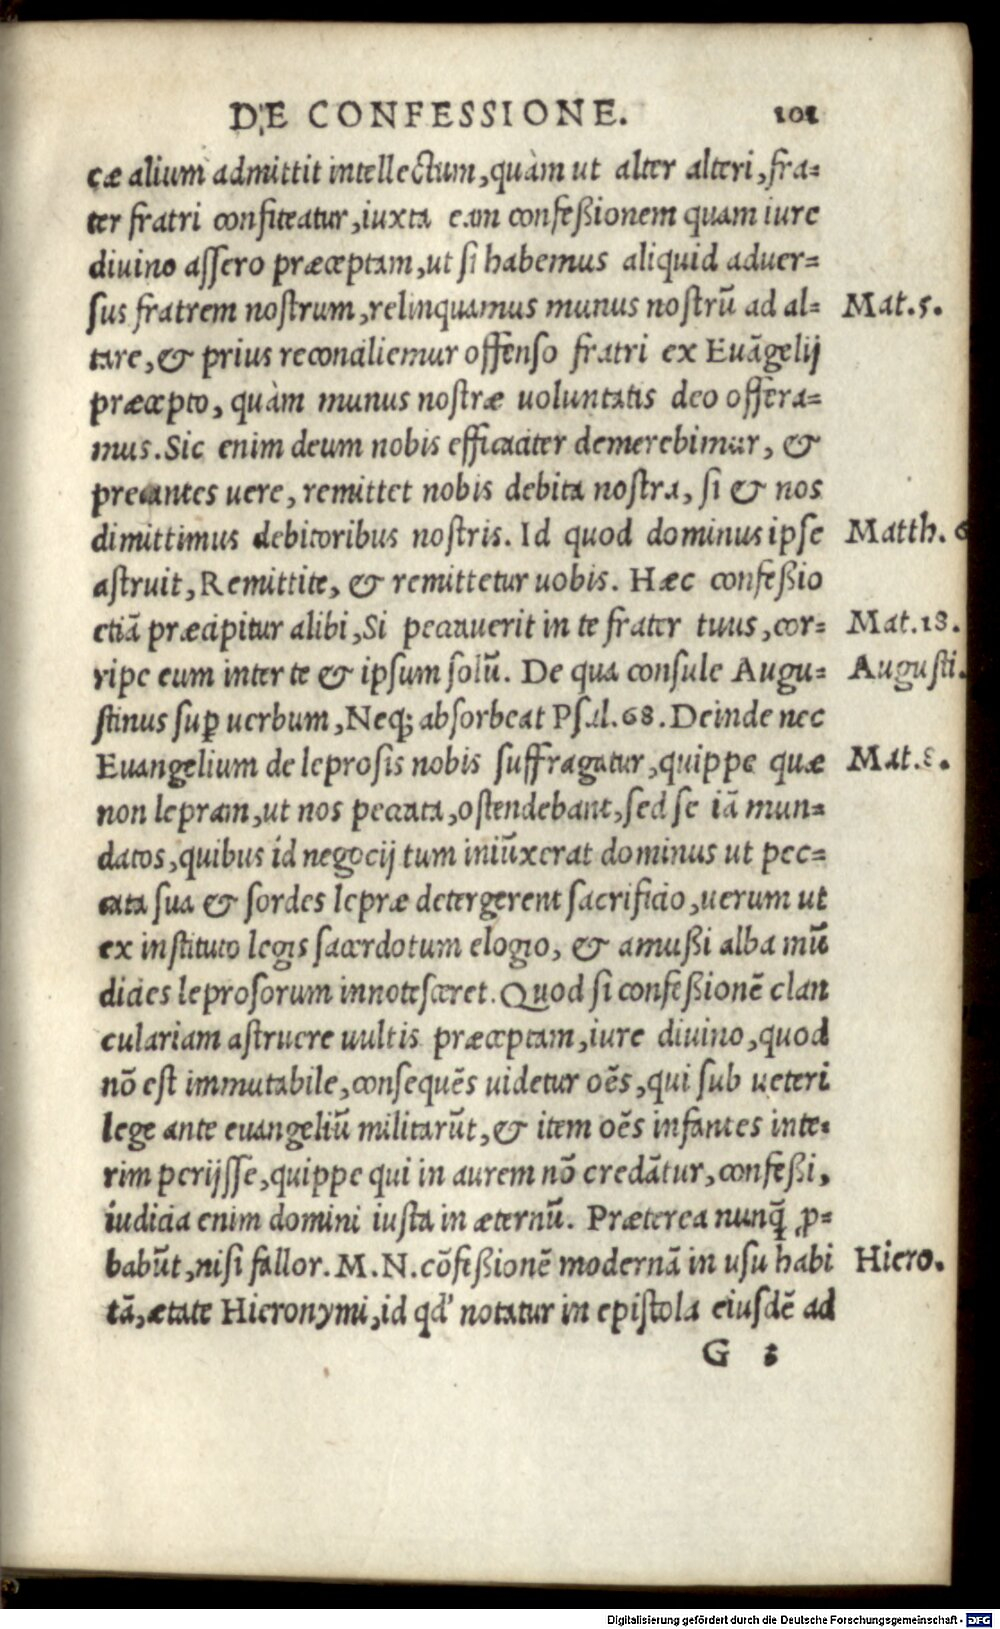 DE CONFESSIONE. 101
cæ alium admittit intellectum, quàm ut alter alteri, fra-
ter fratri confiteatur, iuxta eam confeßionem quam iure
diuino assero præceptam, ut si habemus aliquid aduer-
sus fratrem nostrum, relinquamus munus nostrũ ad al- Mat.5.
tare, & prius reconciliemur offenso fratri ex Euãgelij
præcepto, quàm munus nostræ uoluntatis deo offera-
mus. Sic enim deum nobis efficaciter demerebimur, &
precantes uere, remittet nobis debita nostra, si & nos
dimittimus debitoribus nostris. Id quod dominus ipse Matth. 6
astruit, Remittite, & remittetur uobis. Hæc confeßio
etiã præcipitur alibi, Si peccauerit in te frater tuus, cor- Mat.18.
ripe eum inter te & ipsum solũ. De qua consule Augu- Augusti.
stinus sup̱ uerbum, Neq; absorbeat Psal.68. Deinde nec
Euangelium de leprosis nobis suffragatur, quippe quæ Mat.8.
non lepram, ut nos peccata, ostendebant, sed se iã mun-
datos, quibus id negocij tum iniũxerat dominus ut pec-
cata sua & sordes lepræ detergerent sacrificio, uerum ut
ex instituto legis sacerdotum elogio, & amußi alba mũ
dicies leprosorum innotesceret. Quod si confeßionẽ clan
culariam astruere uultis præceptam, iure diuino, quod
nõ est immutabile, consequẽs uidetur oẽs, qui sub ueteri
lege ante euangeliũ militarũt, & item oẽs infantes inte-
rim perijsse, quippe qui in aurem nõ credãtur, confeßi,
iudicia enim domini iusta in æternũ. Præterea nunq̃ ꝓ-
babũt, nisi fallor. M. N. cõfeßionẽ modernã in usu habi Hiero.
tã, ætate Hieronymi, id qd' notatur in epistola eiusdẽ ad
G 3
Digitalisierung gefördert durch die Deutsche Forschungsgemeinschaft - DFG